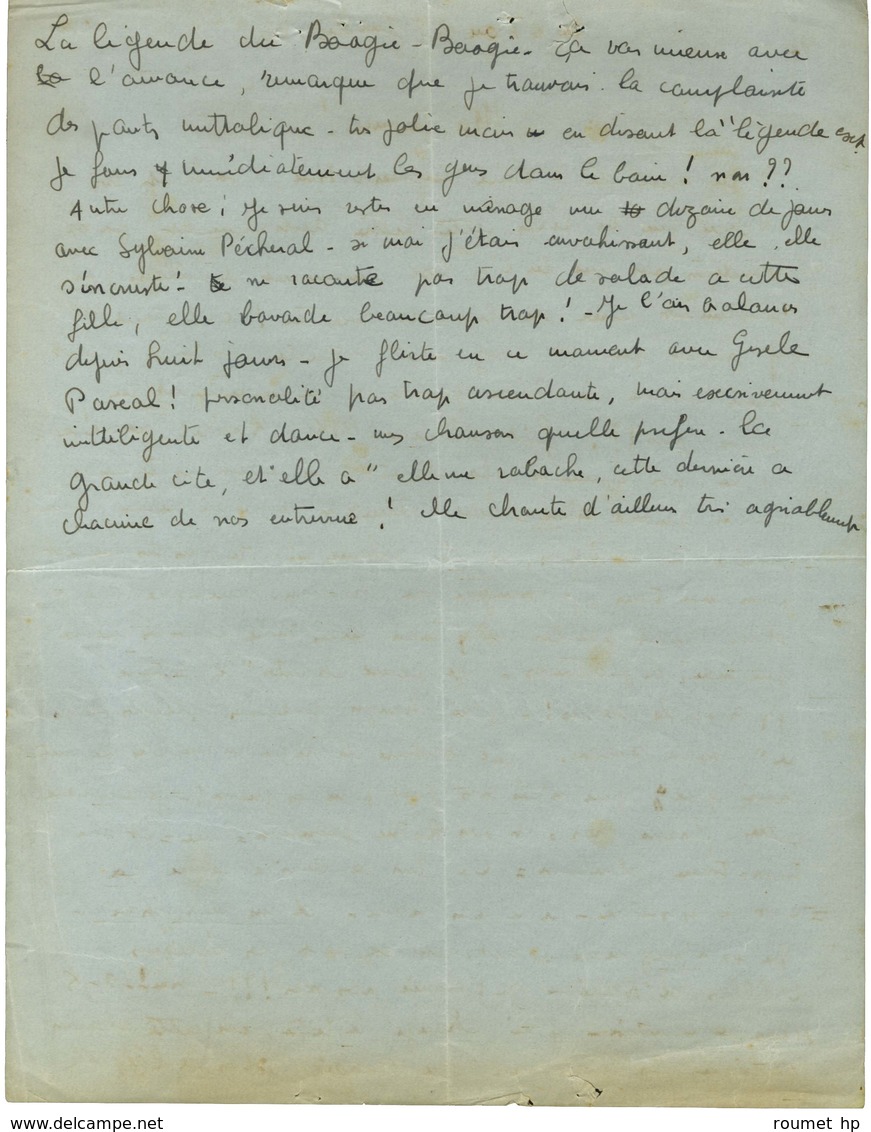 La légende du Boogie-Boogie - ça vas mieux avec
l'avance, remarque que je trouvais la complainte
des ponts métralique - très jolie mais en disant la "légende ect.
Je fous immédiatement les gens dans le bain ! non ??
Autre chose ; je suis restes en ménage une dizaine de jours
avec Sylvaine Pécheral - si moi j'étais envahissant, elle, elle
s'incruste ! - ne raconte pas trop de salade a cette
fille, elle bavarde beaucoup trop ! - Je l'ais balancé
depuis huit jours - je flirte en ce moment avec Gisele
Pascal ! personalité pas trop ascendante, mais excesivement
intteligente et douce - mes chanson quelle prefere - la
grande cité, et "elle a" elle me rabache, cette dernière a
chacune de nos entrevue ! elle chante d'ailleurs tris agriablement
roumet hp